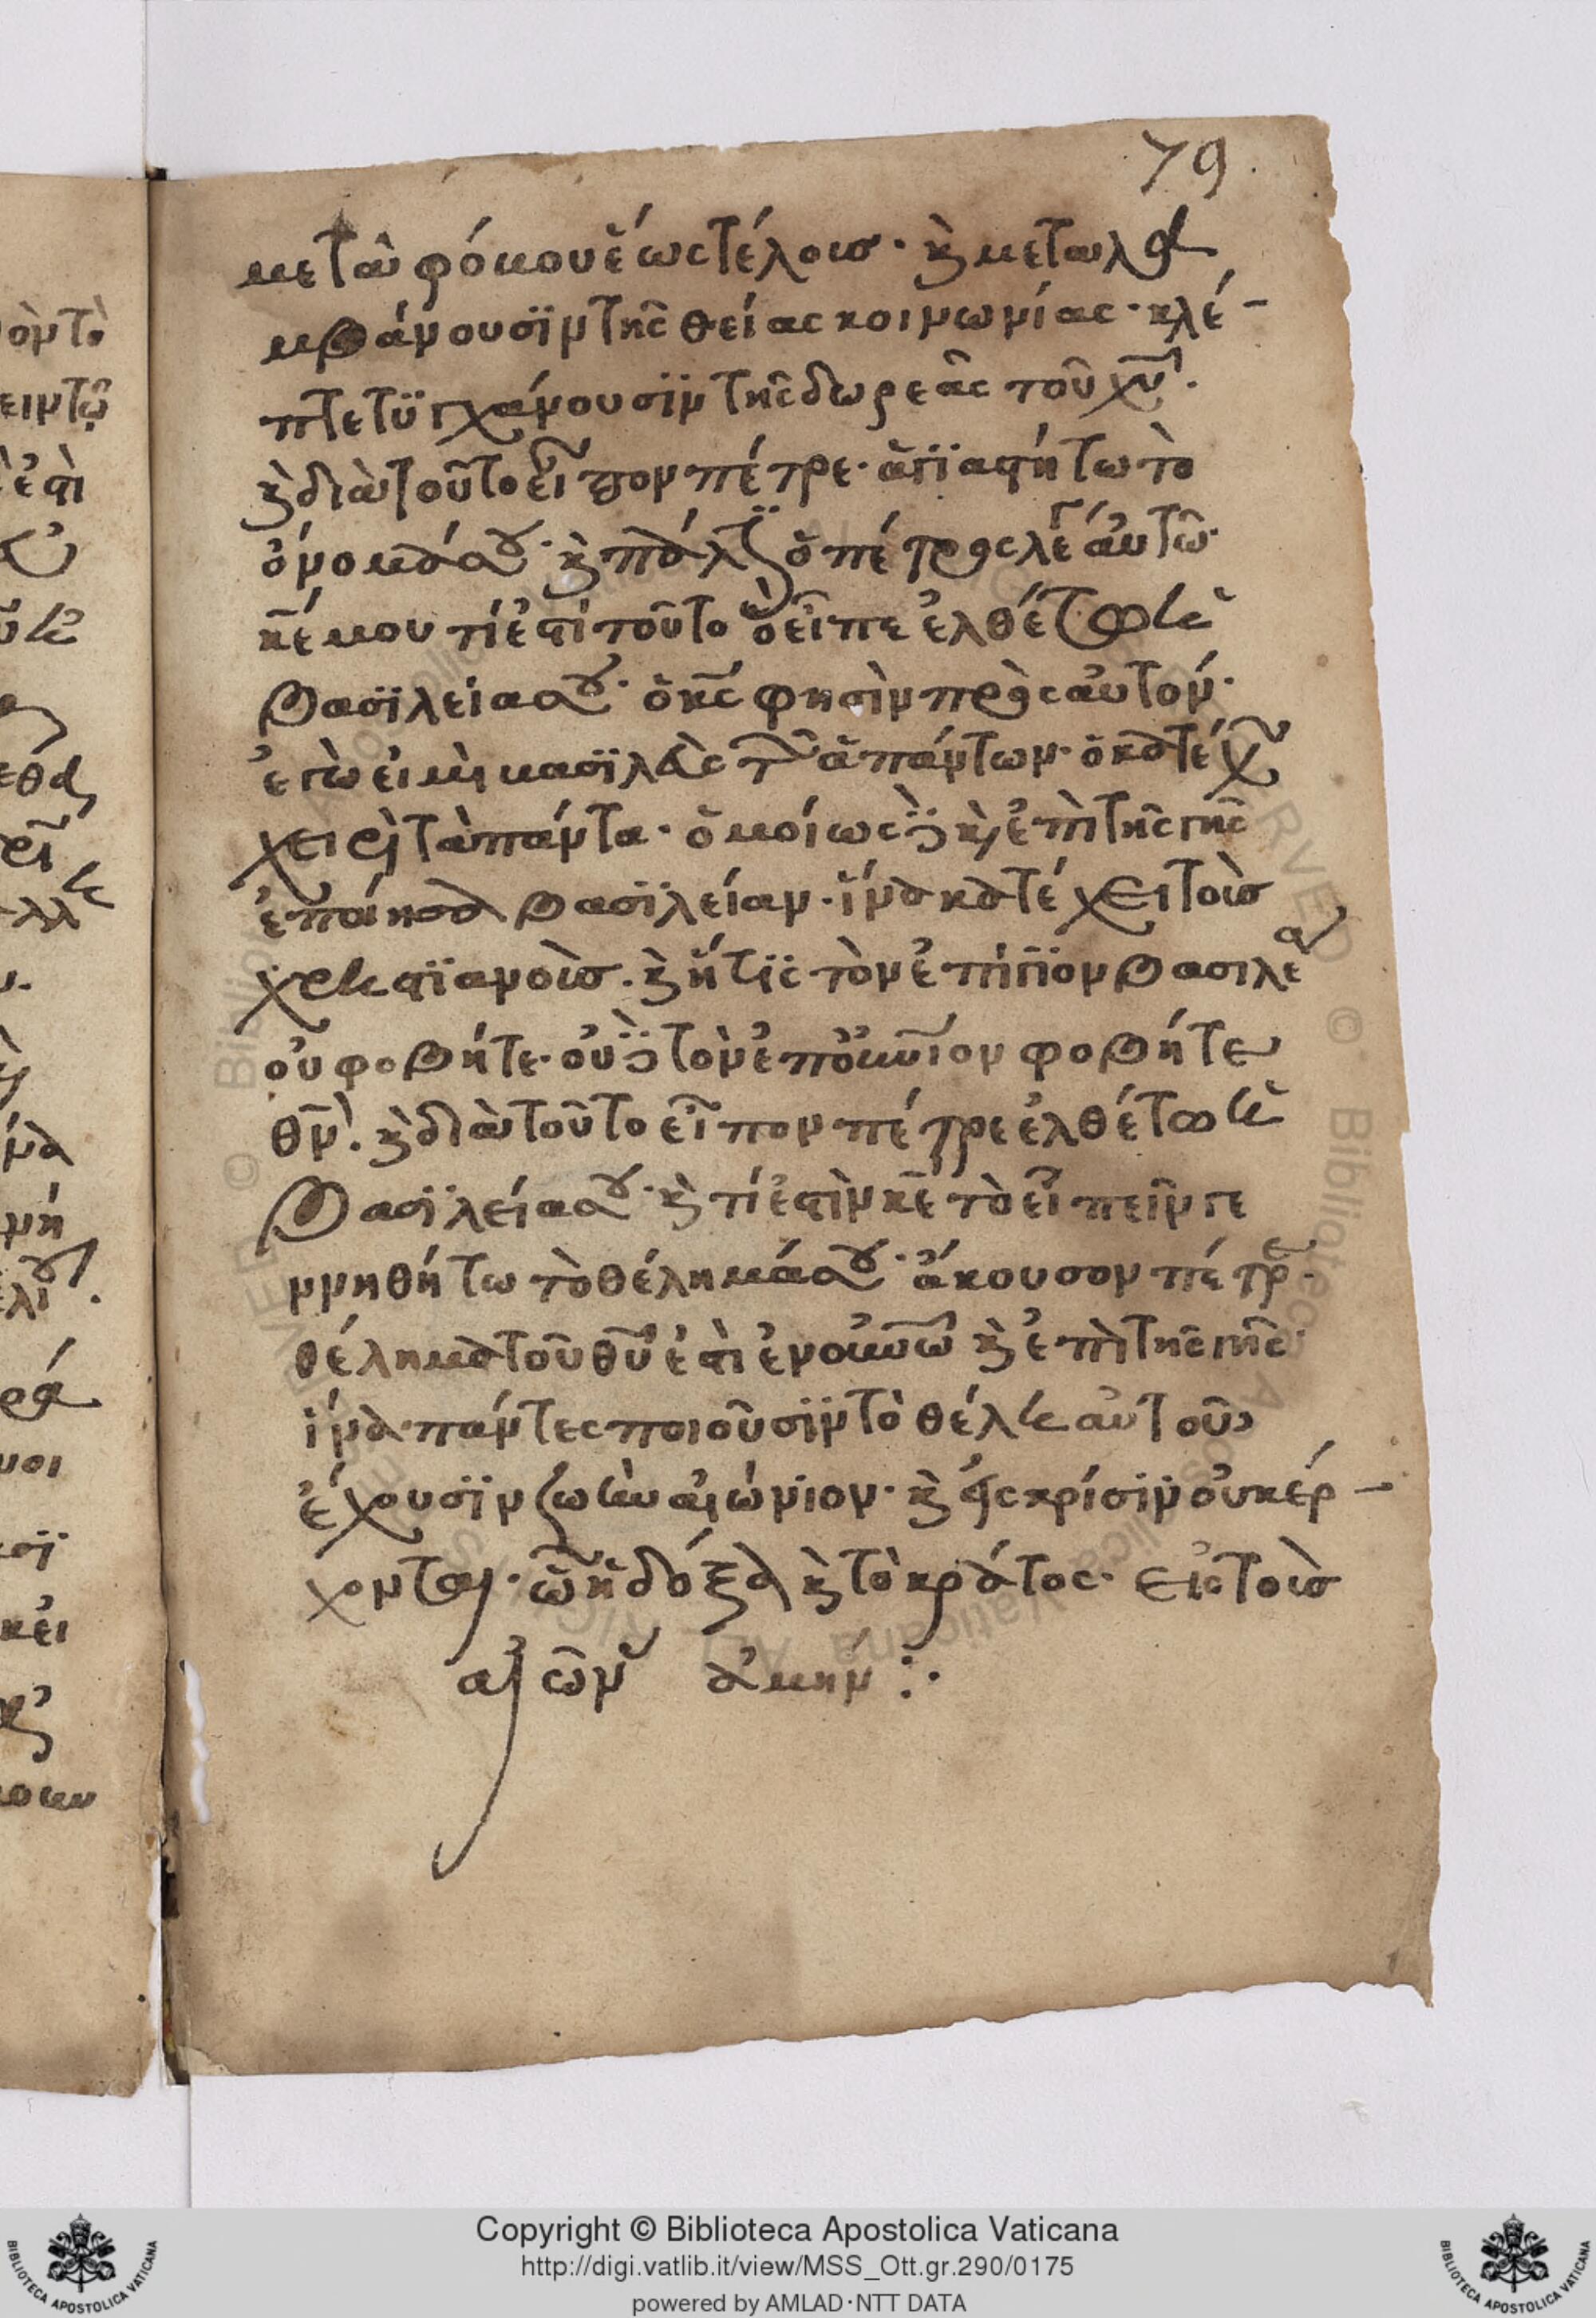 79
μετὰ φόμου ἕως τέλους· κ̀ μεταλα
μβάνουσϊν τῆς θείας κοινωνίας· κλέ-
πτε τϋγχάνουσϊν τῆς δωρεᾶς τοῦ χῦ.
κ̀ διὰ τοῦτο εἶπον πέτρε· ἁγϊαστήτω τὸ
ὄνομά σου· κ̀ πάλϊν ὁ πέτρος λέγ αὐτῶ·
κ̅έ μου τί ἐστὶ τοῦτο ὃ εἶπε ἐλθέτω ἡ
βασϊλεία σου· ὁ κ̅ς φησὶν πρὸς αὐτόν·
ἐγὼ εἰμὶ μασϊλεὺς τῶν ἁπάντων· ὁ κατέχ
χειρὶ τὰ πάντα· ὁμοίως δὲ κ̀ ἐπὶ τῆς γῆς
ἐποίησα βασϊλείαν· ἵνα κατέχει τοὺς
χρϊστϊανούς. κ̀ ἥτϊς τὸν ἐπίγϊον βασιλέα
οὐ φοβήτε· οὐδὲ τὸν ἐπουνϊον φοβήτε
θ̅ν. κ̀ διὰ τοῦτο εἶπον πέτρε ἐλθέτω ἡ
βασϊλεία σου· κ̀ τί ἐστὶν κ̅ε τὸ εἰπεῖν γε
ννηθήτω τὸ θέλημά σου· ἄκουσον πέτρε·
θέλημα τοῦ θ̅υ ἐστὶ ἐν οὐνῶ κ̀ ἐπὶ τῆς γῆς·
ἵνα πάντες ποιοῦσϊν τὸ θέλει αὐτοῦ
ἔχουσϊν ζωὴν αἰώνϊον· κ̀ εἰς κρίσϊν οὐκ έρ-
χονται· ὧ ἡ δόξα κ̀ τὸ κράτος· εἰς τοὺς
αἰῶν ἀμήν :·
Copyright © Biblioteca Apostolica Vaticana
http://digi.vatlib.it/view/MSS_Ott.gr.290/0175
powered by AMLAD·NTT DATA